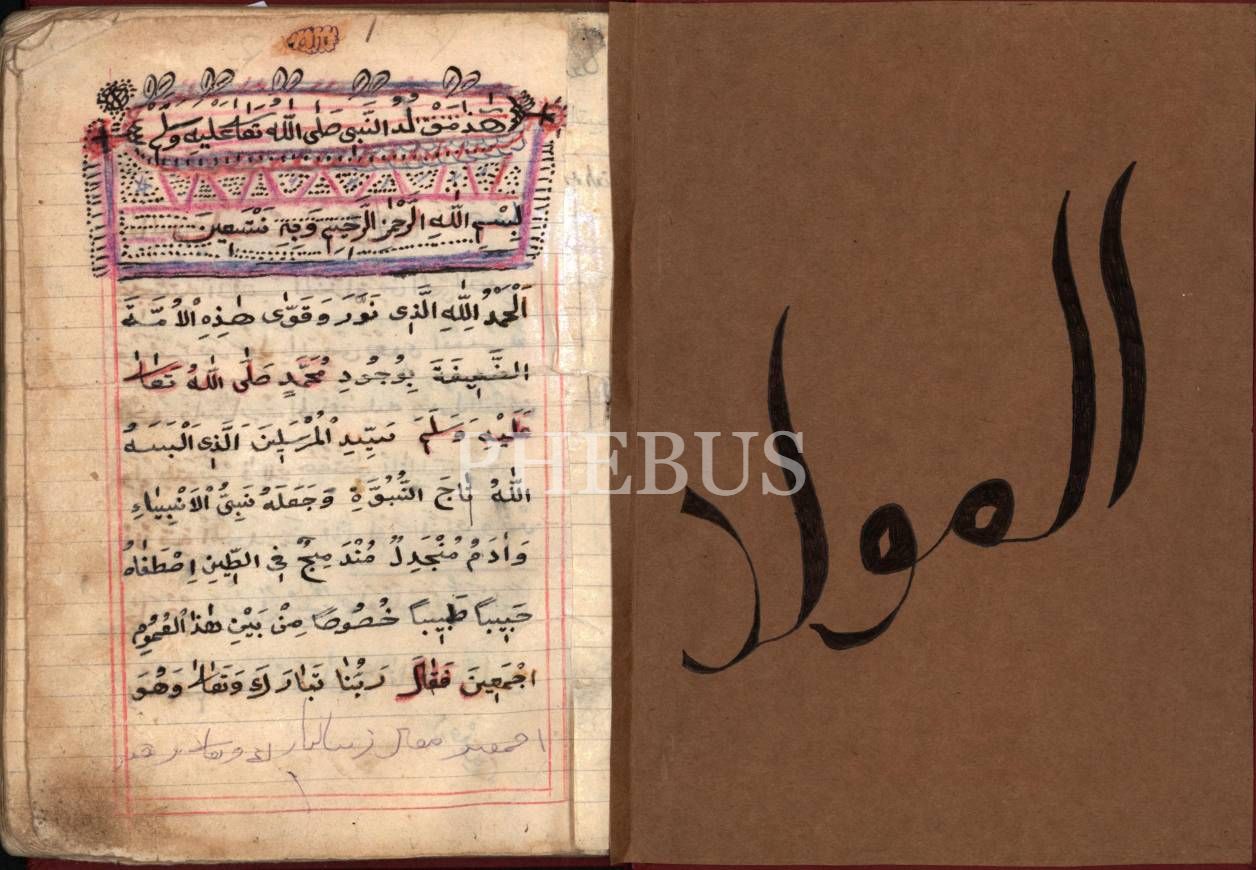 المولد
١
هٰذَا مَوْلُدُ النَّبِى صَلَّى اللّٰهُ تَعَالٰى عَلَيْهِ وَسَلَّمْ
بِسْمِ اللّٰهِ الرَّحْمٰنِ الرَّحِيمِ وَبِهِ نَسْتَعِينَ
اَلْحَمْدُ لِلّٰهِ الَّذِى نَوَّرَ وَقَوَّى هٰذِهِ الْاُمَّةَ
الضَّعِيفَةَ بِوُجُودِ مُحَمَّدٍ صَلَّى اللّٰهُ تَعَالٰى
عَلَيْهِ وَسَلَّمَ سَيِّدِ الْمُرْسَلِينَ الَّذِى اَلْبَسَهُ
اللّٰهُ تَاجَ النُّبُوَّةِ وَجَعَلَهُ نَبِىُّ الْاَنْبِيَاءِ
وَاٰدَمُ مُنْجَدِلٌ مُنْدَمِجٌ فِى الطِّينِ اِصْطَفَاهُ
حَبِيباً طَبِيباً خُصُوصًا مِنْ بَيْنِ هٰذَا الْعُمُومِ
اَجْمَعِينَ فَقَالَ رَبُّنَا تَبَارَكَ وَتَعَالٰى وَهُوَ
PHEBUS